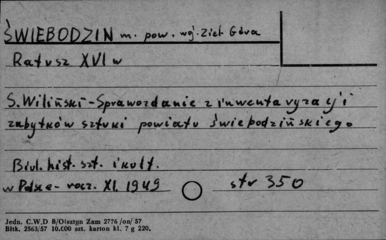 ŚWIEBODZIN m. pow. wój. Ziel. Góra
Ratusz XVI w
S. Wiliński - Sprawozdanie z inwentaryzacji
zabytków sztuki powiatu świebodzińskiego
Biul. hist. szt. i kult.
w Polsce - rocz. XI. 1949 str 350
Jedn. C.W.D B/Olsztyn Zam 2776 /on/ 57
Błtk. 2563/57 10.000 szt. karton kl. 7 g 220.